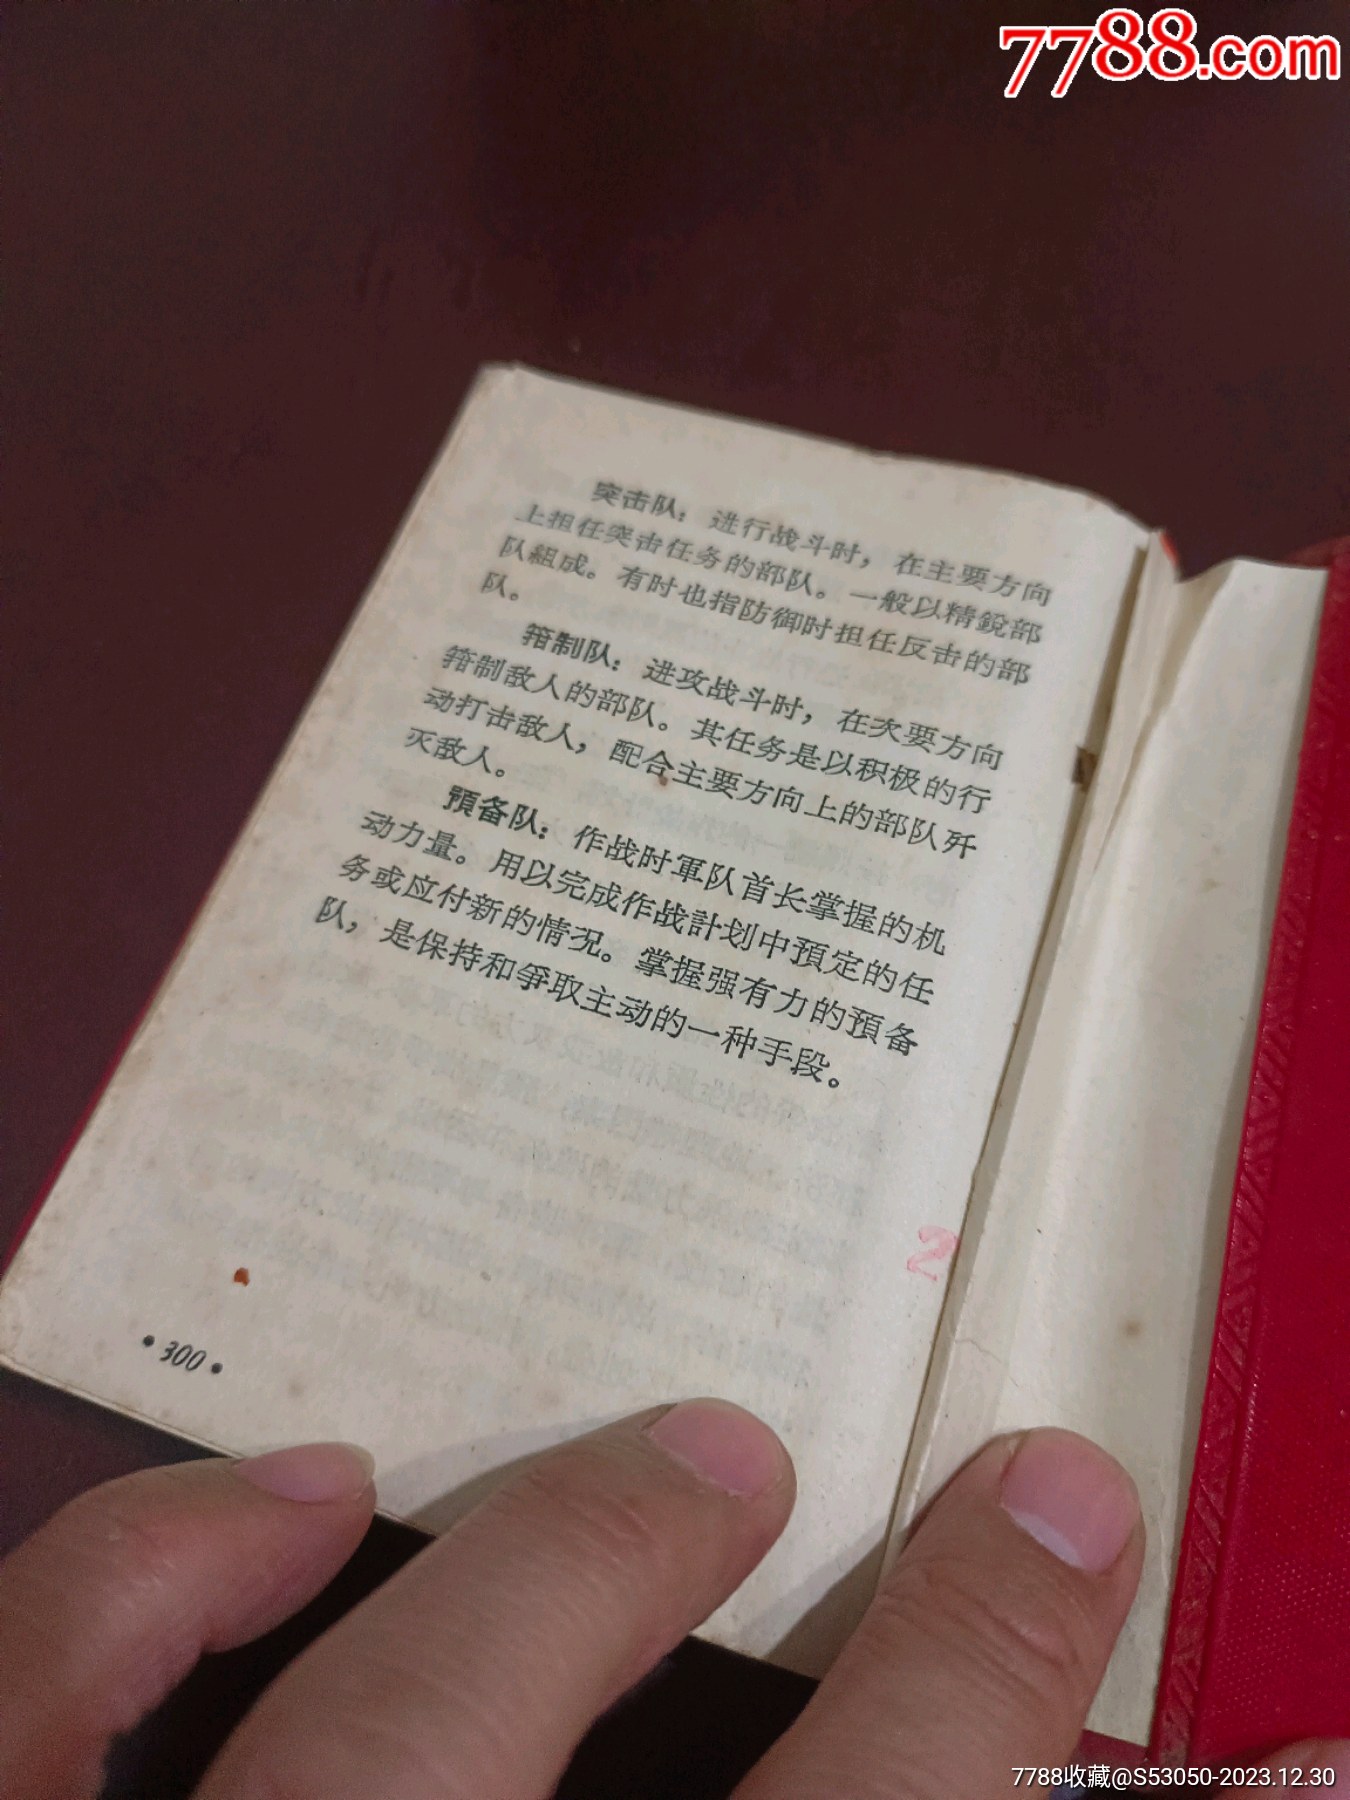 7788.com
突击队：进行战斗时，在主要方向
上担任突击任务的部队。一般以精銳部
队組成。有时也指防御时担任反击的部
队。
箝制队：进攻战斗时，在次要方向
箝制敌人的部队。其任务是以积极的行
动打击敌人，配合主要方向上的部队歼
灭敌人。
預备队：作战时軍队首长掌握的机
动力量。用以完成作战計划中預定的任
务或应付新的情况。掌握强有力的預备
队，是保持和爭取主动的一种手段。
2
·300·
7788收藏@S53050-2023.12.30